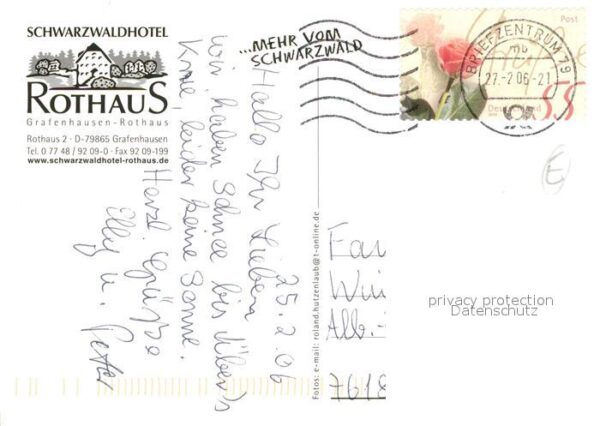 SCHWARZWALDHOTEL
ROTHAUS
Grafenhausen - Rothaus
Rothaus 2 · D-79865 Grafenhausen
Tel. 0 77 48 / 92 09-0 · Fax 92 09-199
www.schwarzwaldhotel-rothaus.de
...MEHR VOM
SCHWARZWALD
BRIEFZENTRUM 79
mb
27.-2.06-21
Post
55
25.2.06
Hallo Ihr Lieben
wir haben Schnee bis über's
Knie, leider keine Sonne.
Herzl. Grüße
Elly u. Peter
Fotos: e-mail: roland.hutzenlaub@t-online.de
Fa
Wi
Alb.-
7618
privacy protection
Datenschutz
E